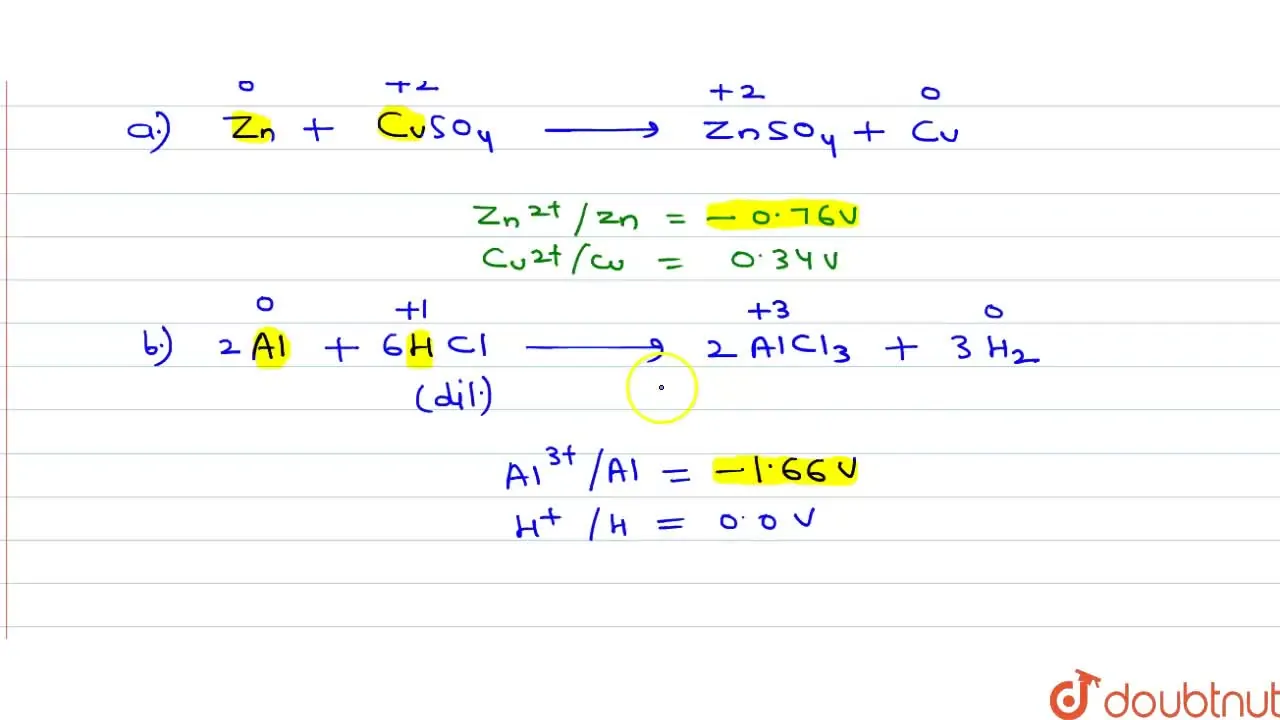 0 +2 +2 0
a.) Zn + CuSO4 ⟶ ZnSO4 + Cu
Zn2+/Zn = -0.76V
Cu2+/Cu = 0.34V
0 +1 +3 0
b.) 2Al + 6HCl ⟶ 2AlCl3 + 3H2
(dil.)
Al3+/Al = -1.66V
H+/H = 0.0V
doubtnut